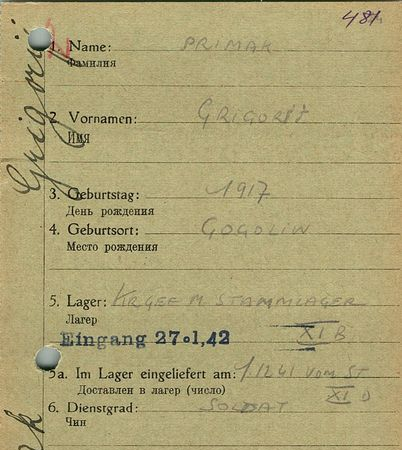 481
1. Name: PRIMAK
Фамилия
2. Vornamen: GRIGORIJ
Имя
3. Geburtstag: 1917
День рождения
4. Geburtsort: GOGOLIN
Место рождения
5. Lager: M. STAMMLAGER
Лагер
XI B
Eingang 27.1,42
5a. Im Lager eingeliefert am: 1.12.41 VOM ST
Доставлен в лагер (число)
XI D
6. Dienstgrad: SOLDAT
Чин
Grigorij